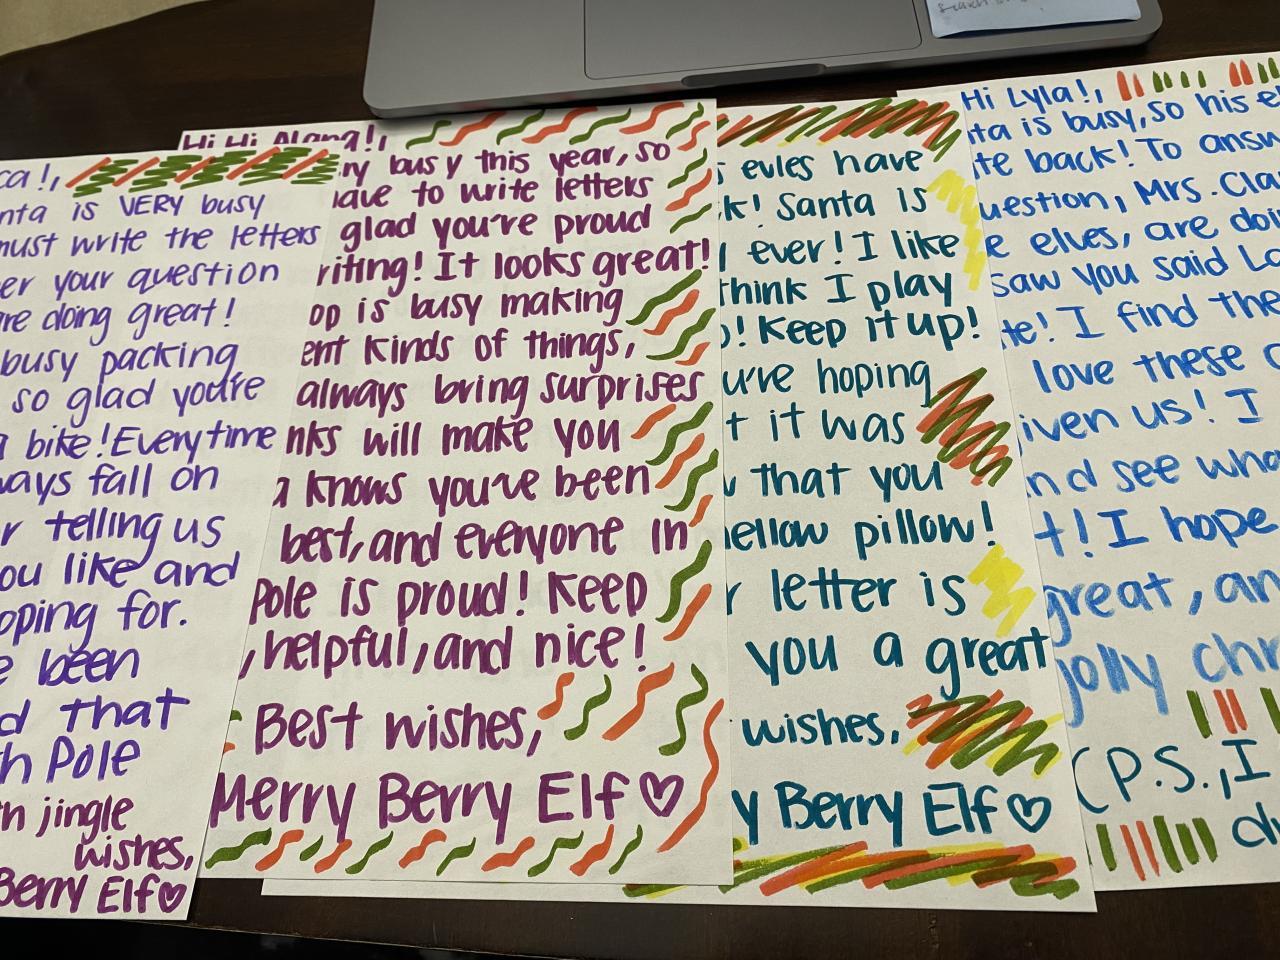 ca!,
nta is VERY busy
must write the letters
er your question
are doing great!
busy packing,
so glad you're
a bike! Everytime
ways fall on
r telling us
ou like and
oping for.
e been
d that
th Pole
n jingle
wishes,
Berry Elf♡
Hi Hi Alana!,
ry busy this year, so
have to write letters
glad you're proud
riting! It looks great!
op is busy making
ent kinds of things,
always bring surprises
nks will make you
a knows you've been
best, and everyone in
Pole is proud! Keep
, helpful, and nice!
Best wishes,
Merry Berry Elf♡
s evles have
k! Santa is
ever! I like
think I play
o! Keep it up!
u're hoping
t it was
w that you
mellow pillow!
r letter is
you a great
wishes,
y Berry Elf♡
Hi Lyla!,
nta is busy, so his e
te back! To answ
uestion, Mrs. Cla
e elves, are doi
saw you said La
te! I find the
love these c
given us! I
nd see wha
t! I hope
great, an
jolly chr
(P.S., I